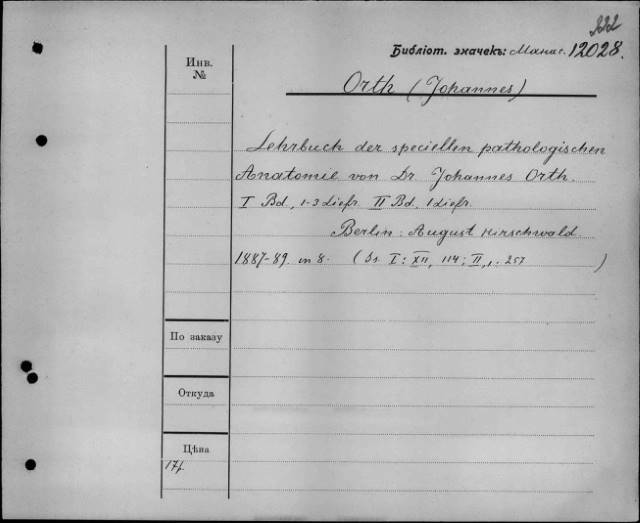 Библіот. значекъ: Манас. 12028.
Инв.
№
Orth (Johannes)
Lehrbuch der speciellen pathologischen
Anatomie von Dr. Johannes Orth.
I Bd, 1-3 Liefr. II Bd. 1 Liefr.
Berlin: August Hirschwald
1887-89 in 8. ( I: XII, 114; II, 257 )
По заказу
Откуда
Цѣна